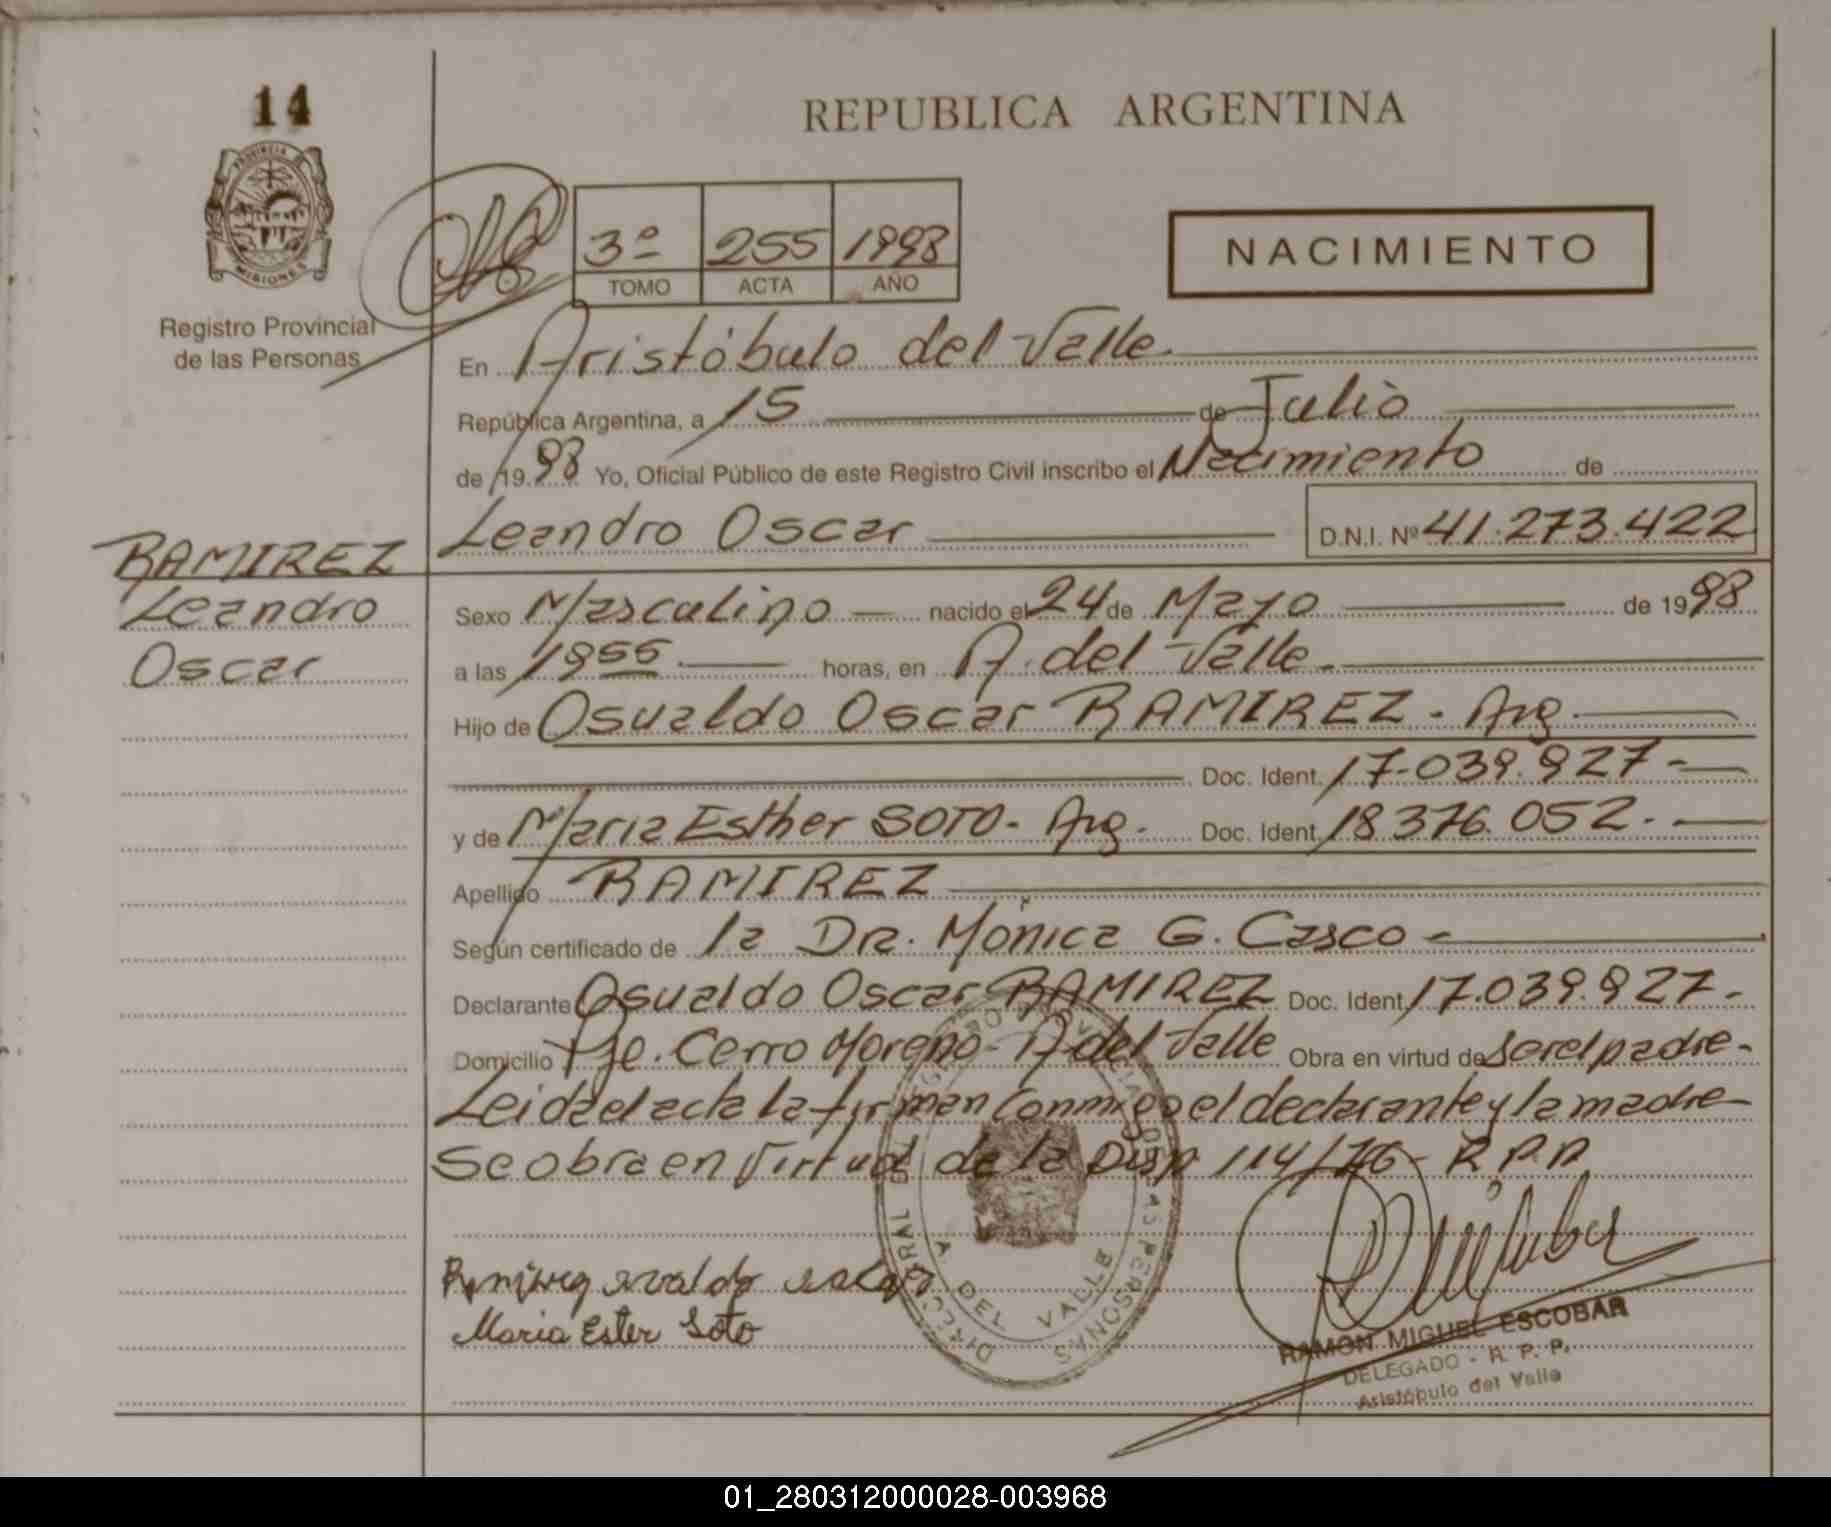 14
REPUBLICA ARGENTINA
PROVINCIA DE
MISIONES
Registro Provincial
de las Personas
3º 255 1998
TOMO ACTA AÑO
NACIMIENTO
En Aristóbulo del Valle
República Argentina, a 15 de Julio
de 19 98 Yo, Oficial Público de este Registro Civil inscribo el Nacimiento de
Leandro Oscar D.N.I. Nº 41.273.422
RAMIREZ
Leandro
Oscar
Sexo Masculino nacido el 24 de Mayo de 19 98
a las 1855 horas, en A. del Valle
Hijo de Osvaldo Oscar RAMIREZ - Arg
Doc. Ident. 17.039.927-
y de Maria Esther SOTO - Arg. Doc. Ident. 18.376.052.-
Apellido RAMIREZ
Según certificado de la Dra. Mónica G. Casco -
Declarante Osvaldo Oscar RAMIREZ Doc. Ident. 17.039.927-
Domicilio Pje. Cerro Moreno - A del Valle Obra en virtud de ser el padre-
Leida el acta la firman conmigo el declarante y la madre
Se obra en virtud de la Disp 114/76 - R.P.P.
DEL VALLE
Maria Ester Soto
RAMON MIGUEL ESCOBAR
DELEGADO - R. P. P.
Aristóbulo del Valle
01_280312000028-003968